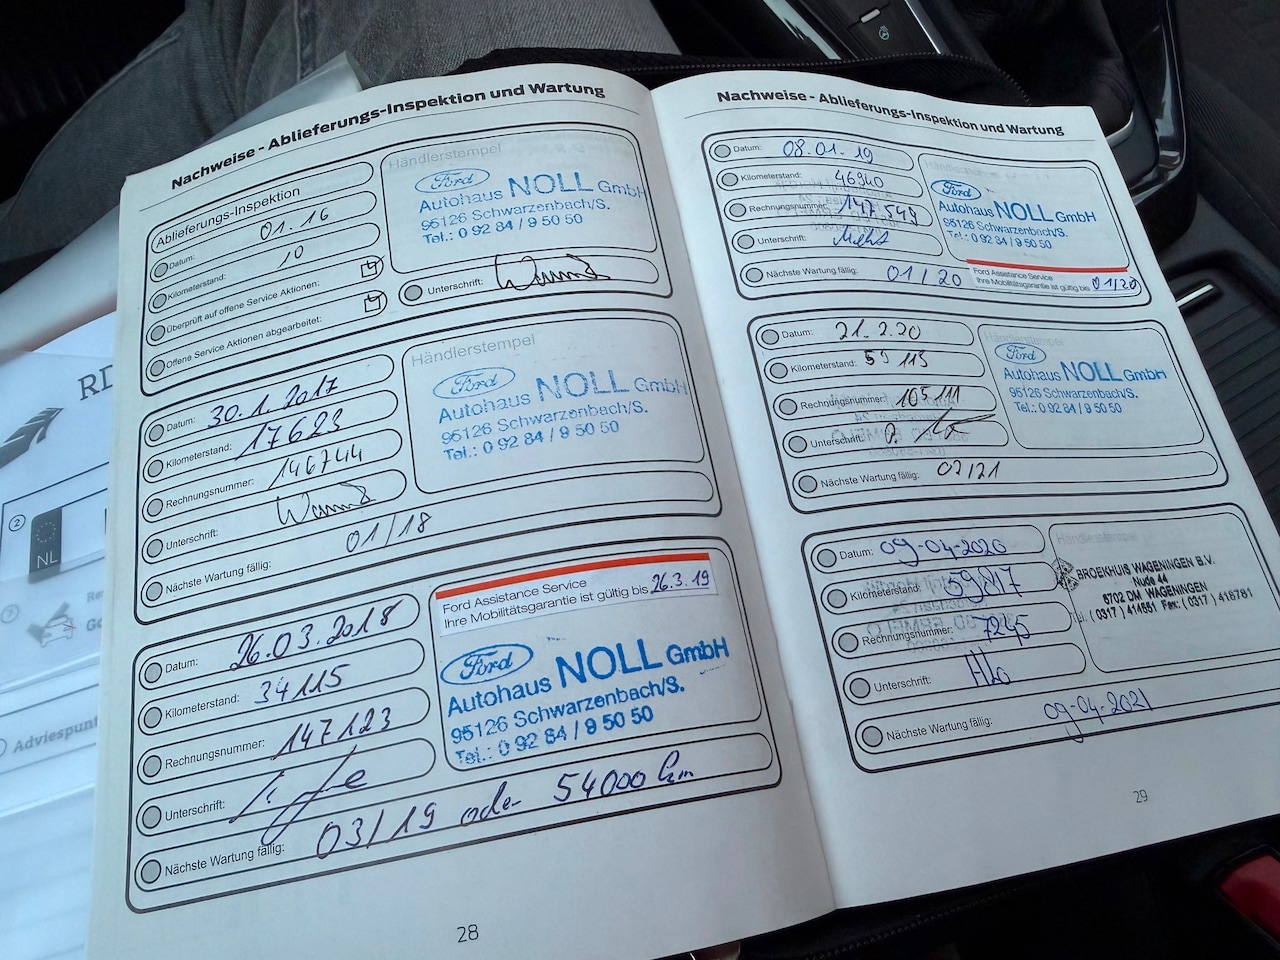 Nachweise - Ablieferungs-Inspektion und Wartung
Ablieferungs-Inspektion
Datum: 01.16
Kilometerstand: 10
Überprüft auf offene Service Aktionen:
Offene Service Aktionen abgearbeitet:
Händlerstempel
Ford
Autohaus NOLL GmbH
95126 Schwarzenbach/S.
Tel.: 0 92 84 / 9 50 50
Unterschrift:
Datum: 30.1.2017
Kilometerstand: 17623
Rechnungsnummer: 146744
Unterschrift:
Nächste Wartung fällig: 01/18
Händlerstempel
Ford
Autohaus NOLL GmbH
95126 Schwarzenbach/S.
Tel.: 0 92 84 / 9 50 50
Datum: 26.03.2018
Kilometerstand: 34115
Rechnungsnummer: 147123
Unterschrift:
Nächste Wartung fällig: 03/19 oder 54000 km
Ford Assistance Service
Ihre Mobilitätsgarantie ist gültig bis 26.3.19
Ford
Autohaus NOLL GmbH
95126 Schwarzenbach/S.
Tel.: 0 92 84 / 9 50 50
28
Nachweise - Ablieferungs-Inspektion und Wartung
Datum: 08.01.19
Kilometerstand: 46940
Rechnungsnummer: 147549
Unterschrift:
Nächste Wartung fällig: 01/20
Ford
Autohaus NOLL GmbH
95126 Schwarzenbach/S.
Tel.: 0 92 84 / 9 50 50
Ford Assistance Service
Ihre Mobilitätsgarantie ist gültig bis 01/20
Datum: 21.2.20
Kilometerstand: 59 113
Rechnungsnummer: 105111
Unterschrift:
Nächste Wartung fällig: 02/21
Ford
Autohaus NOLL GmbH
95126 Schwarzenbach/S.
Tel.: 0 92 84 / 9 50 50
Datum: 09-04-2020
Kilometerstand: 59817
Rechnungsnummer: 7245
Unterschrift:
Nächste Wartung fällig: 09-04-2021
Händlerstempel
BROEKHUIS WAGENINGEN B.V.
Nude 44
6702 DM WAGENINGEN
Tel. ( 0317 ) 414651 Fax: ( 0317 ) 418781
29
RD
2
NL
7
Adviespunt